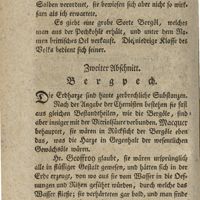 Salben verordnet, sie bewiesen sich aber nicht so wirk-
sam als ich erwartete.
Es giebt eine grobe Sorte Bergöl, welches
man aus der Pechkohle erhält, und unter dem Na-
men brittisches Oel verkauft. Die niedrige Klasse des
Volks bedient sich seiner.
Zweiter Abschnitt.
Bergpech.
Die Erdharze sind harte zerbrechliche Substanzen.
Nach der Angabe der Chemisten bestehen sie fast
aus gleichen Bestandtheilen, wie die Bergöle, sind
aber inniger mit der Vitriolsäure verbunden. Macquer
behauptet, sie wären in Rücksicht der Bergöle eben
das, was die Harze in Gegenhalt der wesentlichen
Gewächsöle wären.
Hr. Geoffroy glaubt, sie wären ursprünglich
alle in flüssiger Gestalt gewesen, und hätten sich in der
Erde erzeugt, von wo aus sie vom Wasser in die Oef-
nungen und Ritzen geführt würden, durch welche das
Wasser fließt; sie verhärteten gar bald, und man finde